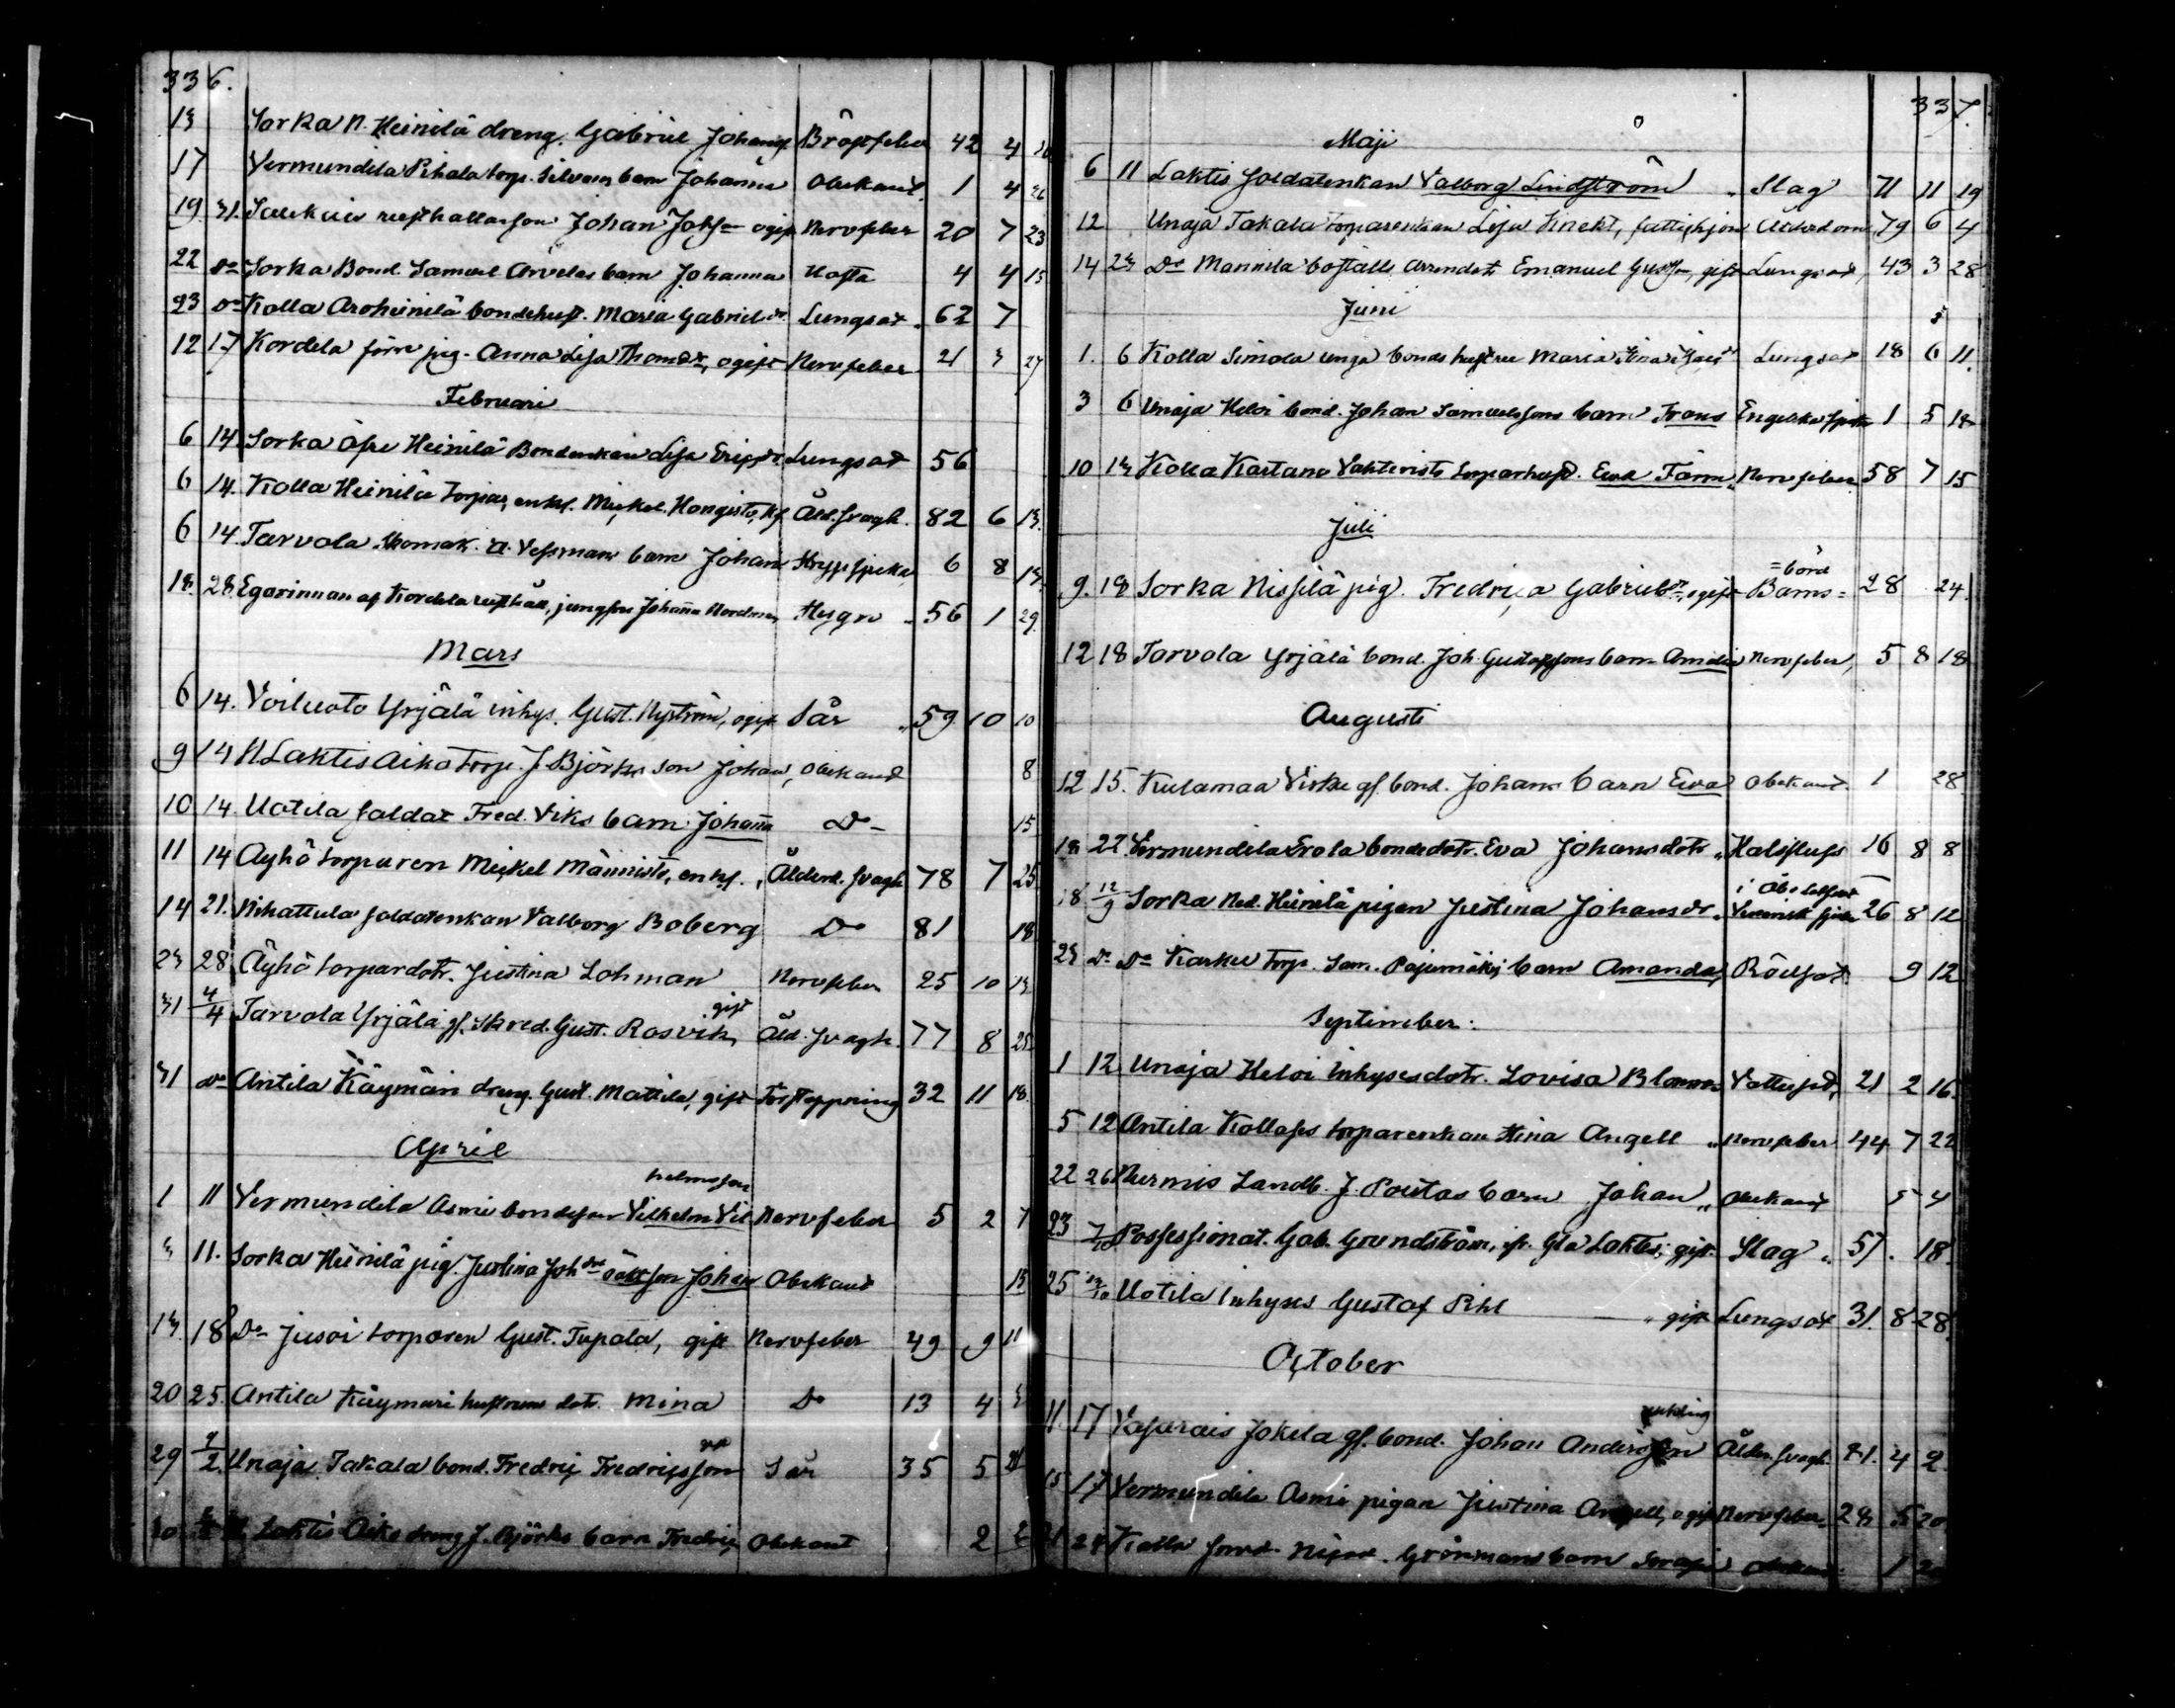 336.
13 Sorka N. Heinilä dreng. Gabriel Johansf Bröstfeber 42 4
17 Vermundila Pihala torp. Silvens barn Johanna Obekant 1 4 26
19 31. reusthallarson Johan Johsson ogift Nervfeber 20 7 23
22 Do Sorka Bond. Samuel Arvelas barn Johanna Hosta 4 4 15
23 Do Kolla Aroheinilä bondehust. Maria Gabrielsdr Lungsot 62 7
12 17 Kordela förre pig. Anna Lisa Thomsdr, ogift Nervfeber 21 3 27
Februari
6 14 Sorka Öfre Heinilä Bondenkan Lisa Ericsdr Lungsot 56
6 14. Kolla Heinilä torpar, enkl. Mickel Hongisto, Ål.svagh. 82 6 13.
6 14 Tarvola Skomak. A. Vessmans barn Johan Strypsjuka 6 8 13.
18. 28. Egarinnan af Kordela rusthåll, jungfru Johanna Nordman, Hugn 56 1 29.
Mars
6 14. Voiluoto Yrjälä inhys. Gust. Nyström, ogift Sår 59 10 10
9 14 N Laktis Aiko torp. J. Björks son Johan, Obekand 8
10 14. Uotila soldat Fred. Viks barn Johanna Do 15
11 14 Äyhö torparen Mickel Männistö, enkl., Ålderd. svagh 78 7 25
14 21. Nihattula soldatenkan Valborg Boberg Do 81 18
23 28 Äyhö torpardotr. Justina Lohman Nervfeber 25 10 13
31 4/4 Tarvola Yrjälä gf. Skred. Gust. Rosvik, gift Åld. svagh. 77 8 25
31 Do Antila Käymäri dreng. Gust. Mattila, gift Förstoppning 32 11 18.
April
1 11 Vermundila Asmi bondeson Vilhelm Vilhelmsson Nervfeber 5 2 7
3 11. Sorka Heinilä pig. Justina Johdrs oäkt son Johan Obekant 13
13 18 Do Jusoi torparen Gust. Tupala, gift Nervfeber 49 9 11
20 25. Antila Käymäri hustruns dotr. Mina Do 13 4
29 2. Unaja Takala bond. Fredric Fredricsson Sår 35 5 21
30 N Laktis Aiko dreng J. Björks barn Fredric Obekant 2
337.
Maji
6 11 Laktis soldatenkan Valborg Lindström Slag 71 11 19
12 Unaja Takala torparenkan Lisa Knekt, fattighjon Ålderdom 79 6 4
14 23 Do Mannila boställs arrendat. Emanuel Gustfson, gift Lungsot, 43 3 28
Juni
1. 6 Kolla Simola unga bonds hustru Maria Stina Lungsot 18 6 11.
3 6 Unaja Heloi bond. Johan Samuelssons barn Frans Engelska sjuka 1 5 18
10 13 Kolla Kastana Vahteristo torparhust. Eva Färm, Nervfeber 58 7 15
Juli
9. 18 Sorka Nissilä pig. Fredrica Gabrielsdr, ogift Barns=börd 28 24.
12 18 Torvola Yrjälä bond. Joh. Gustafssons barn Amalia Nervfeber, 5 8 18
Augusti
12 15. Kulamaa Viska gf. bond. Johans barn Eva Obekant. 1 28.
18 22. Vermundila Erola bondedotr. Eva Johansdotr „ Halsfluss 16 8 8
18 12/9 Sorka Ned. Heinilä pigan Justina Johansdr „ i Åbo Venerisk sjuka 26 8 12
23 Do Do Karku torp. Sam. Pajumäkis barn Amanda, Rödsot 9 12
September.
1 12 Unaja Heloi Inhysesdotr. Lovisa Vattusot, 21 2 16.
5 12 Antila Kollases torparenkan Stina Angell „ Nervfeber 44 7 22
22 26 Nurmis Landb. J. Poutas barn Johan „ Obekant 5 4
23 7/10 Possessionat. Gab. Grundström, fr. Gla Laktis, gift. Slag „ 57. 18.
25 Uotila Inhyses Gustaf Pihl „ gift Lungsot 31. 8 28.
October
11. 17 Vasarais Jokela gf. bond. Johan Andersson enkling Ålder. svagh. 71. 4 2.
15 17 Vermundila Asmi pigan Justina Angell, ogift Nervfeber 23 5 20.
24 Kolla barn 1